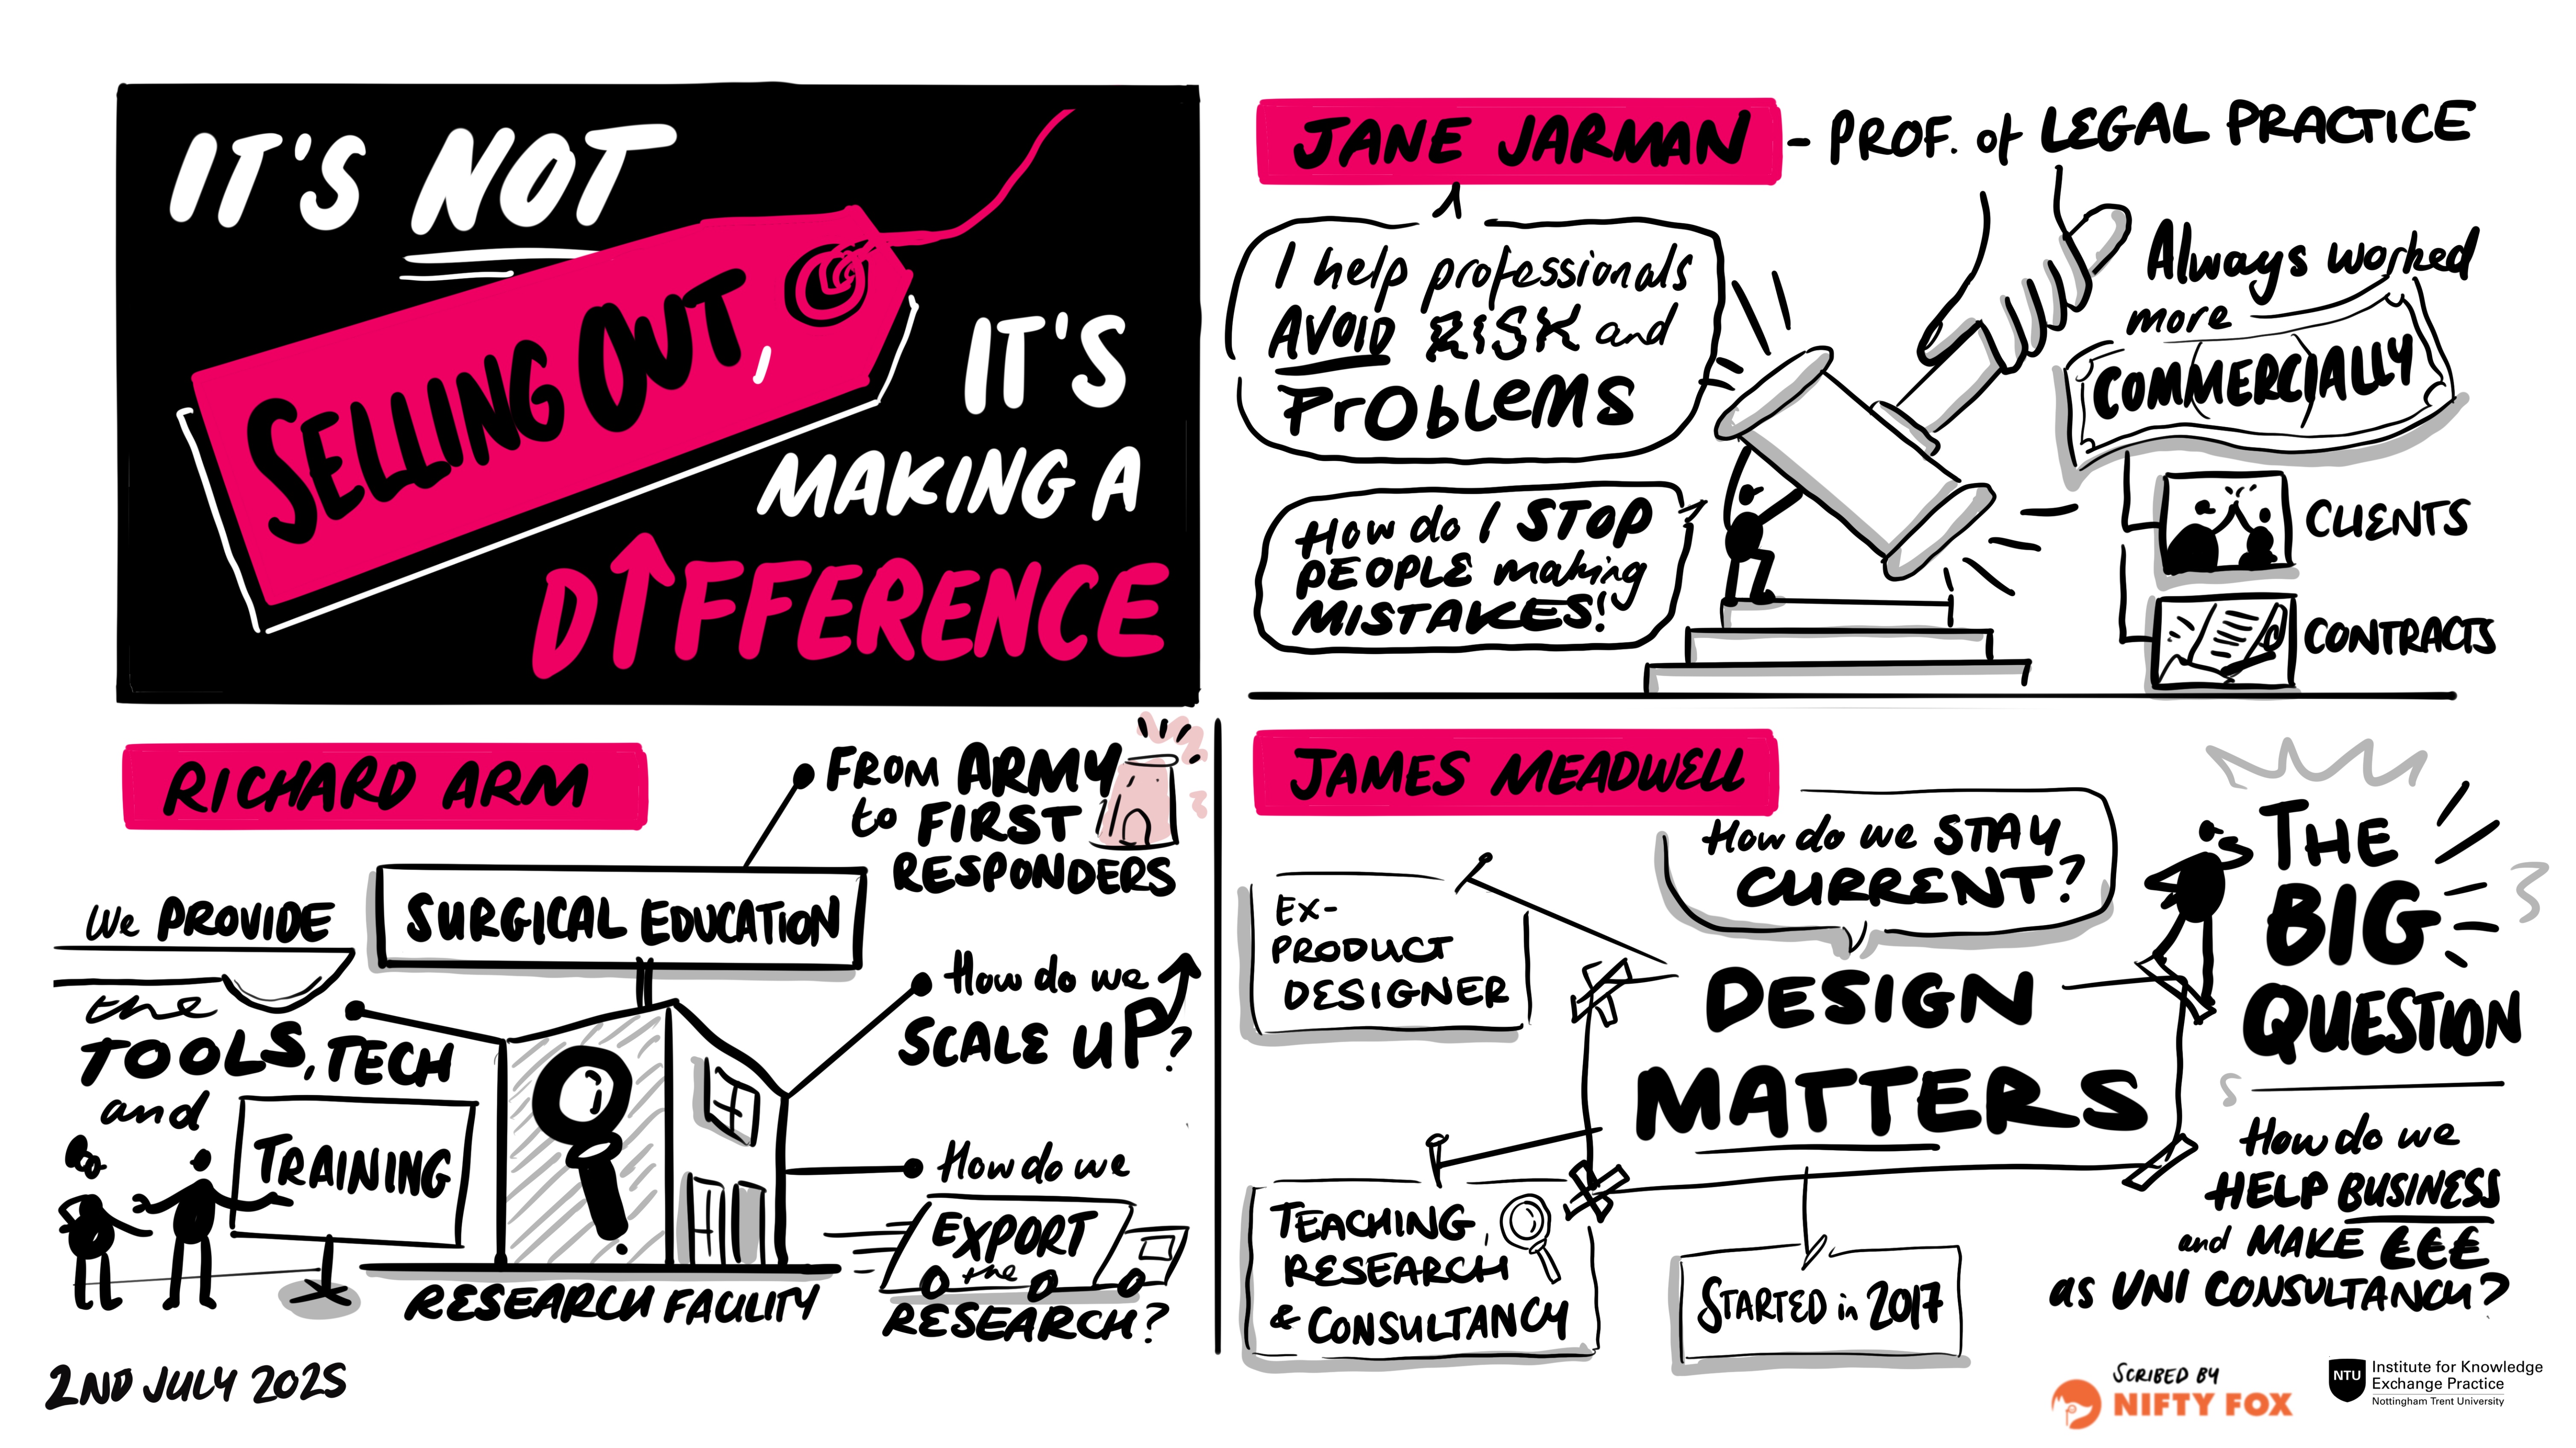 IT'S NOT
SELLING OUT,
IT'S
MAKING A
DIFFERENCE
JANE JARMAN - PROF. of LEGAL PRACTICE
I help professionals
AVOID RISK and
PROBLEMS
How do I STOP
PEOPLE making
MISTAKES!
Always worked
more
COMMERCIALLY
CLIENTS
CONTRACTS
RICHARD ARM
FROM ARMY
to FIRST
RESPONDERS
SURGICAL EDUCATION
We PROVIDE
the
TOOLS, TECH
and
TRAINING
How do we
SCALE UP?
How do we
EXPORT
the
RESEARCH?
RESEARCH FACILITY
JAMES MEADWELL
How do we STAY
CURRENT?
EX-
PRODUCT
DESIGNER
DESIGN
MATTERS
TEACHING,
RESEARCH
& CONSULTANCY
STARTED in 2017
THE
BIG
QUESTION
How do we
HELP BUSINESS
and MAKE £££
as UNI CONSULTANCY?
2ND JULY 2025
SCRIBED BY
NIFTY FOX
NTU
Institute for Knowledge
Exchange Practice
Nottingham Trent University